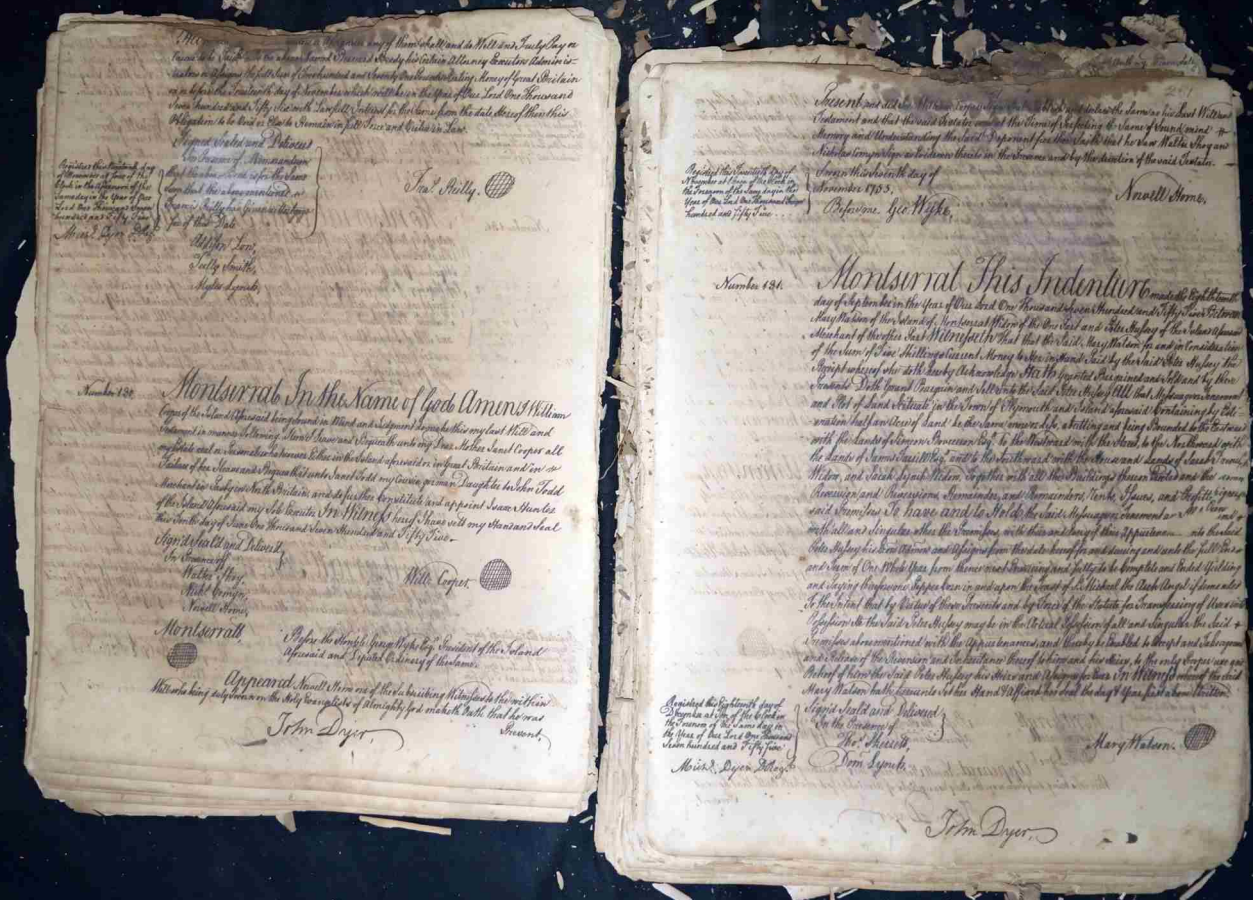 any of them shall and do Well and Truly Pay or
his Certain Attorney Executors Adminis-
trators or Assigns the full Sum of One hundred and Seventy One Pounds Sterling Money of Great Britain
on or before the day of November which will be in the Year of Our Lord One Thousand
Seven Hundred and Fifty Six with Lawfull Interest for the same from the date hereof then this
Obligation to be Void or Else to Remain in full Force and Virtue in Law.
Signed Sealed and Delivered
In Presence of Memorandum
that the abovementioned
for of this Date
Fra.s Reilly.
Registred this day
of November at Four of the
Clock in the Afternoon of the
Same day in the Year of Our
Lord One Thousand Seven
hundred and Fifty Five
Mich.l Dyer DReg.
Smith,
Myles Lynch,
Number 130. Montserrat In the Name of God Amen I William
Cooper of the Island Aforesaid being Sound in Mind and Judgment do make this my last Will and
Testament in manner following Item I Leave and Bequeath unto my Dear Mother Janet Cooper all
my Estate real or Personal whatsoever Either in the Island aforesaid or in Great Britain and on
Failure of her I Leave and Bequeath it unto Janet Todd my Cousin german Daughter to John Todd
Merchant in North Britain, and do further Constitute and appoint Isaac Hunter
of the Island Aforesaid my Sole Executor In Witness hereof I have sett my Hand and Seal
this Tenth day of June One Thousand Seven Hundred and Fifty Five.
Sign'd Seal'd and Deliver'd
In Presence of
Walter Skoy,
Nich.s Comyn,
Newell Horne,
Will.m Cooper
Montserratt,
Before the Honble George Wyke Esq.r President of the Island
Aforesaid and Deputed Ordinary of the same.
Appeared Newell Horne one of the Subscribing Witnesses to the within
Will who being duly Sworn on the Holy Evangelists of Almighty God maketh Oath that he was
Present,
John Dyer,
Present and did see William Cooper Sign Seal Publish and declare the Same as his Last Will and
Testament and that the said Testator was at the Time of Executing the Same of Sound mind
Memory and Understanding the Said Deponent further Saith that he Saw Walter Skoy and
Nicholas Comyn Sign as Evidences thereto in the Presence and by the direction of the said Testator.
Sworn this Seventh day of
November 1755.
Before me Geo Wyke,
Newell Horne,
Registred this Twentieth day of
November at of the Clock in
the Forenoon of the Same day in the
Year of Our Lord One Thousand Seven
hundred and Fifty Five
Number 131. Montserrat This Indenture made the Eighteenth
day of September in the Year of Our Lord One Thousand Seven Hundred and Fifty Five Between
Mary Watson of the Island of Montserrat Widow of the One Part and Peter Hussey of the Island Aforesaid
Merchant of the other Part Witnesseth That that the Said Mary Watson for and in Consideration
of the Sum of Five Shillings Current Money to Her in Hand Paid by the said Peter Hussey the
Receipt whereof She doth hereby Acknowledge Hath Granted Bargained and Sold and by these
Presents Doth Grant Bargain and Sell unto the Said Peter Hussey All that Messuage or Tenement
and Plot of Land Situate in the Town of Plymouth and Island aforesaid Containing by Esti-
mation half an Acre of Land be the Same more or less, abutting and being Bounded to the Eastward
with the Lands of Esq.r to the Westward with the Street to the Northward with
the Lands of James Esq.r and to the Southward with the House and Lands of Sarah
Widow, and Sarah Widow, Together with all the Buildings thereon Erected and the
Reversion and Reversions, Remainder, and Remainders, Rents, Issues, and Profitts
said Premises To have and to Hold the Said Messuage or Tenement
with all and Singular other the Premises, with their and every of their Appurtenances unto the said
Peter Hussey his Executors Administrators and Assigns from the date hereof for and during and unto the full End
and Term of One Whole Year from thence next Ensuing and fully to be Compleat and Ended Yielding
and Paying therefore One Pepper Corn in and upon the Feast of St. Michael the Arch Angel if demanded
To the Intent that by Virtue of these Presents and by Force of the Statute for Transferring of Uses into
Possession He the Said Peter Hussey may be in the Actual Possession of all and Singular the Said
Premises abovementioned with the Appurtenances, and thereby be Enabled to Accept and Take a grant
and Release of the Reversion and Inheritance thereof to him and his Heirs, to the only Proper use and
Behoof of him the Said Peter Hussey his Heirs and Assigns for Ever In Witness whereof the said
Mary Watson hath hereunto Set her Hand & Affixed her Seal the day & Year first above Written.
Sign'd Seal'd and Deliver'd
In the Presence of
Dom.k Lynch,
Mary Watson.
Registred this Eighteenth day of
November at of the Clock in
the Forenoon of the Same day in
the Year of Our Lord One Thousand
Seven hundred and Fifty Five
Mich.l Dyer DReg.
John Dyer,